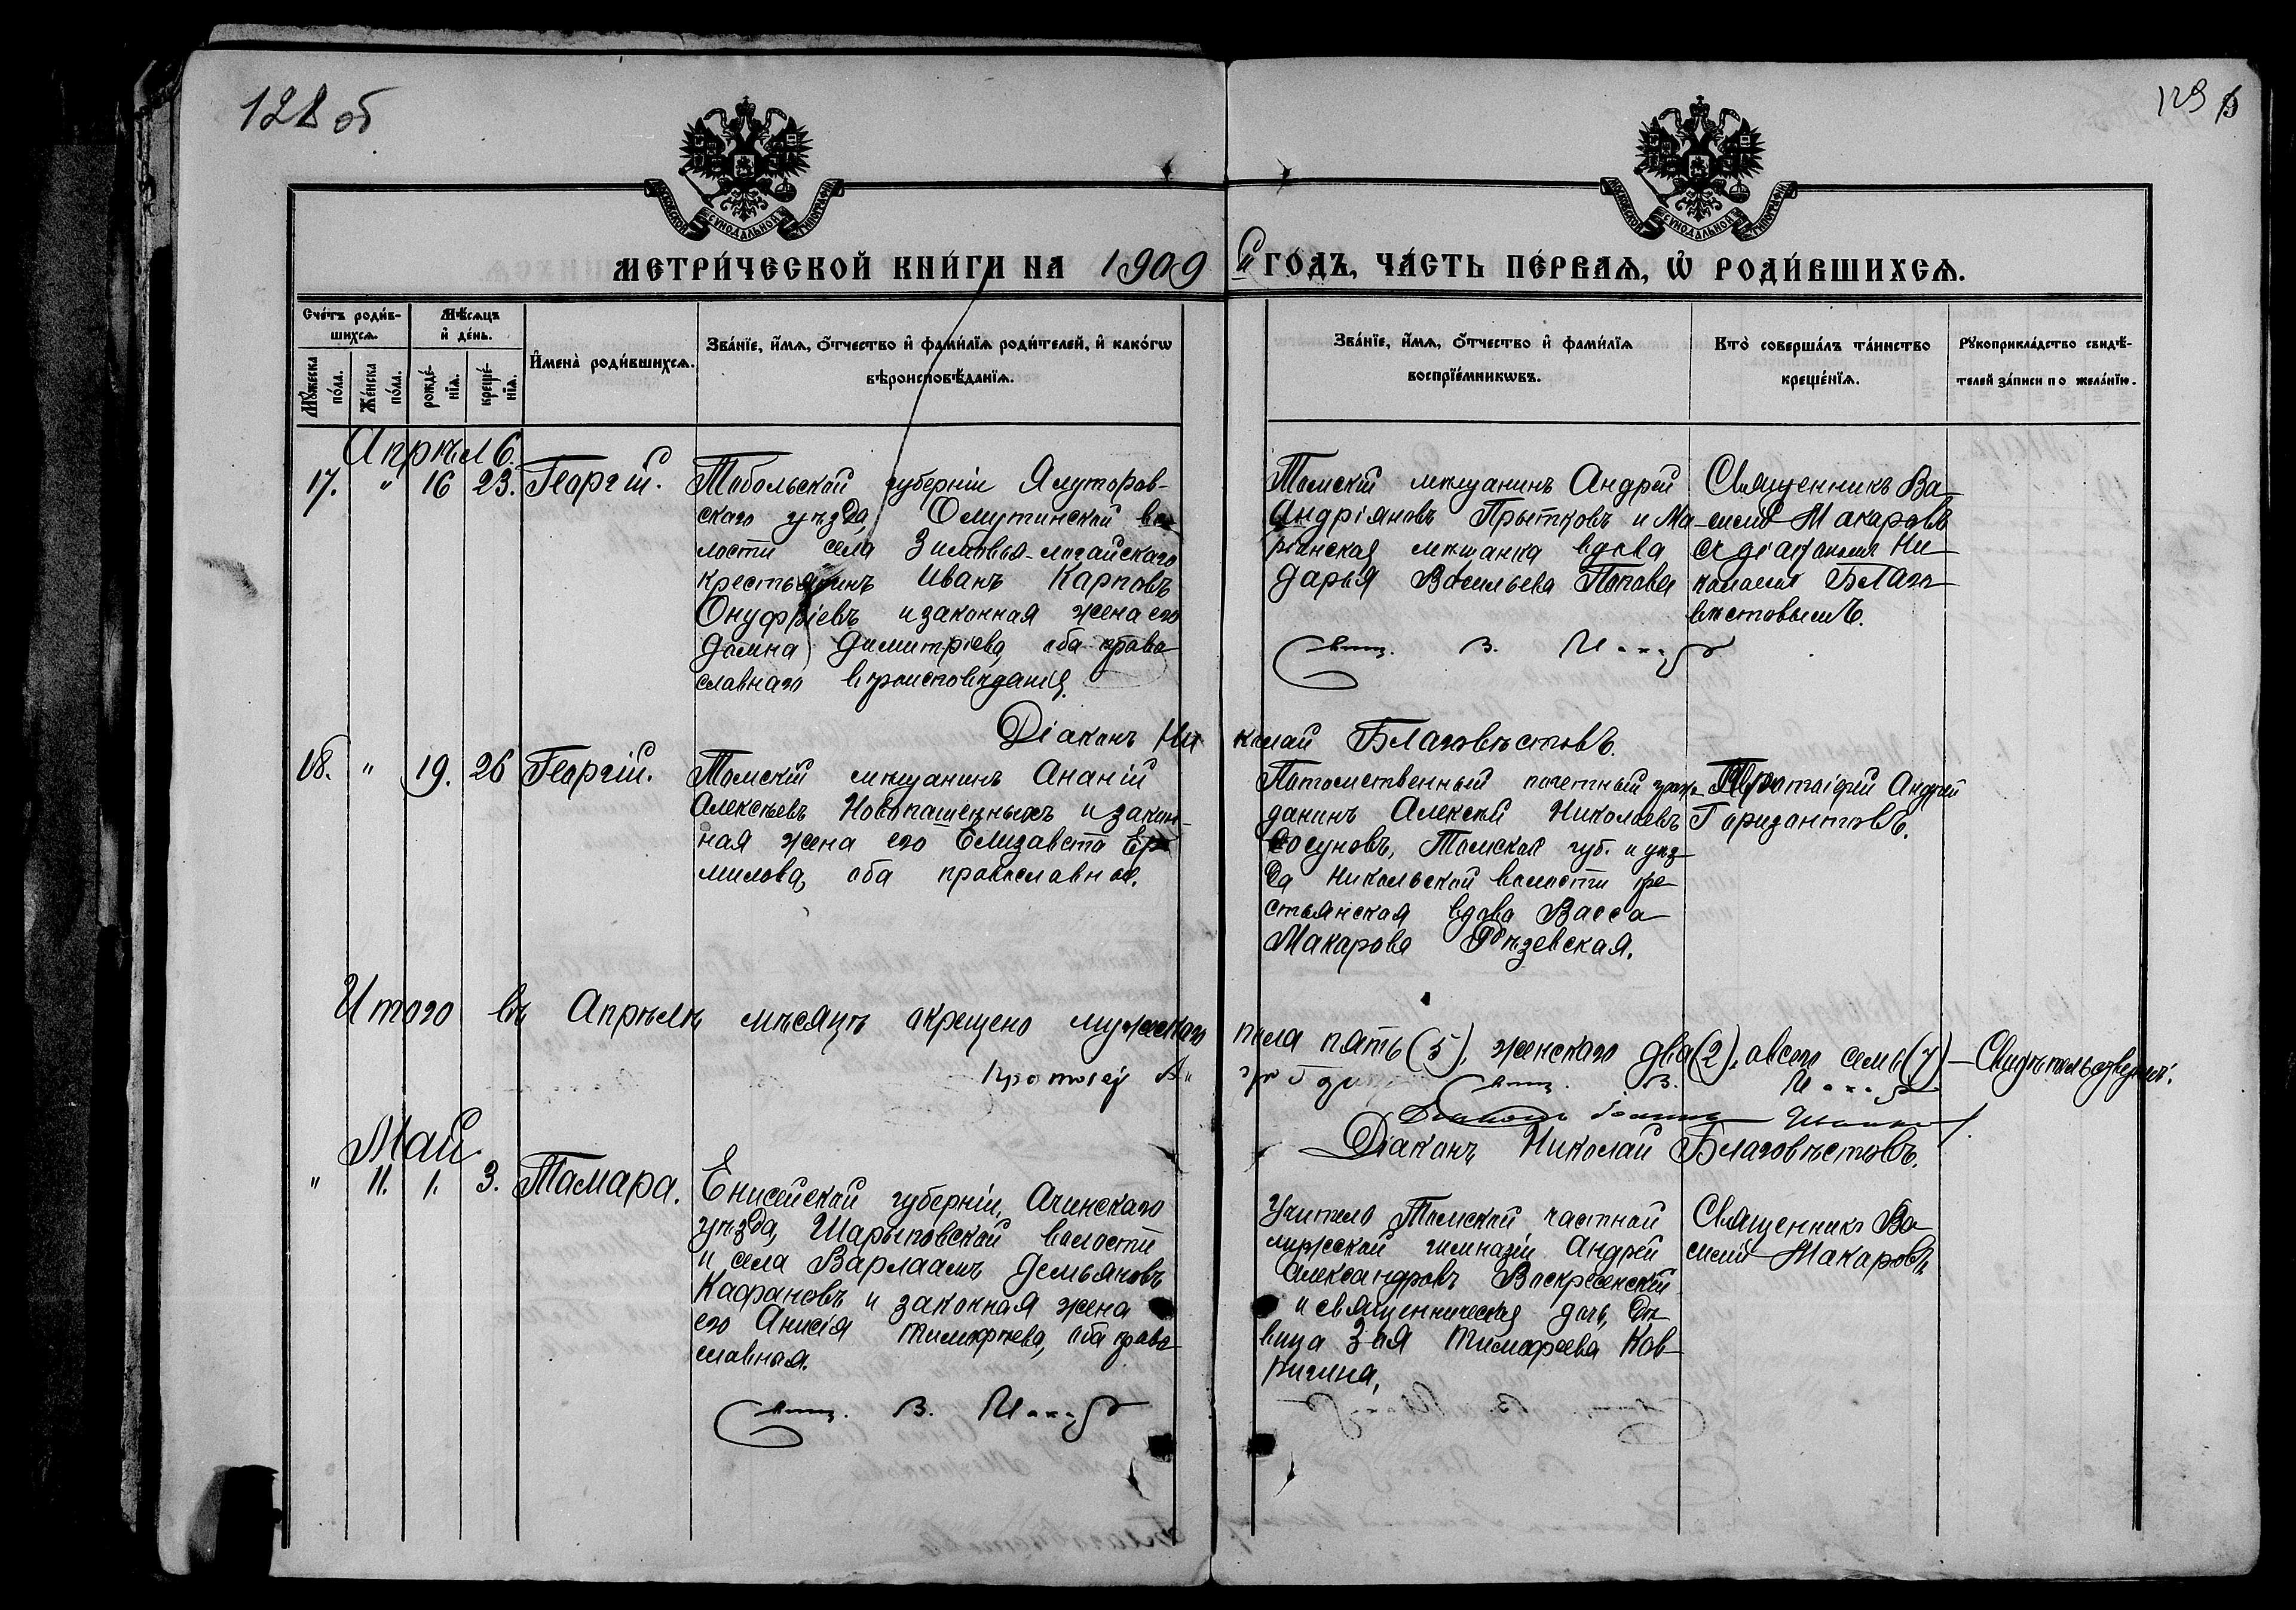 128 об
129
МОСКОВСКОЙ СѴНОДАЛЬНОЙ ТИПОГРАФІИ
МОСКОВСКОЙ СѴНОДАЛЬНОЙ ТИПОГРАФІИ
МЕТРИ́ЧЕСКОЙ КНИ́ГИ НА 1909 й ГО́ДЪ, ЧА́СТЬ ПЕ́РВАѦ, Ѡ҆ РОДИ́ВШИХСѦ.
Сче́тъ роди́в-
шихсѧ.
Мѣ́сѧцъ
и҆ де́нь.
Мꙋ́жеска
по́ла.
Же́нска
по́ла.
рожде́-
нїѧ.
креще́-
нїѧ.
И҆мена̀ роди́вшихсѧ.
Зва́нїе, и҆́мѧ, ѻ҆́тчество и҆ фами́лїѧ роди́телей, и҆ како́гѡ
вѣроисповѣ́данїѧ.
Зва́нїе, и҆́мѧ, ѻ҆́тчество и҆ фами́лїѧ
воспрїе́мникѡвъ.
Кто̀ соверша́лъ та́инство
креще́нїѧ.
Рꙋкоприкла́дство свидѣ́-
телей за́писи по жела́нїю.
Апрѣль
17. " 16 23. Георгій.
Тобольской губерніи Ялуторов-
скаго уѣзда, Омутинской во-
лости села Зимовья-логайскаго
крестьянинъ Иванъ Карповъ
Онуфріевъ и законная жена его
Домна Димитріева, оба право-
славнаго вѣроисповѣданія.
Томскій мѣщанинъ Андрей
Андріановъ Прытковъ и Ма-
ріинская мѣщанка вдова
Дарья Васильева Попова
Священникъ Ва-
силій Макаровъ
съ діакономъ Ни-
колаемъ Благо-
вѣстовымъ.
Свящ. В.
Діаконъ Николай Благовѣстовъ.
18. " 19. 26 Георгій.
Томскій мѣщанинъ Ананій
Алексѣевъ Новопашенныхъ и закон-
ная жена его Елизавета Ер-
милова, оба православные.
Потомственный почетный граж-
данинъ Алексѣй Николаевъ
Сосуновъ, Томской губ. и уѣз-
да Никольской волости кре-
стьянская вдова Васса
Макарова Рѣзевская.
Протоіерей Андрей
Горизонтовъ.
Итого въ Апрѣлѣ мѣсяцѣ окрещено мужскаго пола пять (5), женскаго два (2), а всего семь (7) – Свидѣтельствуемъ:
Протоіерей А.
Свящ. В.
Діаконъ
Діаконъ Николай Благовѣстовъ.
Май
" 11. 1. 3. Тамара.
Енисейской губерніи, Ачинскаго
уѣзда, Шарыповской волости
и села Варлаамъ Демьяновъ
Кафановъ и законная жена
его Анисія Тимофѣева, оба право-
славная.
Учитель Томской частной
мужской гимназіи Андрей
Александровъ Воскресенскій
и священническая дочь, дѣ-
вица Зоя Тимофеева Ков-
ригина,
Священникъ Ва-
силій Макаровъ
Свящ. В.